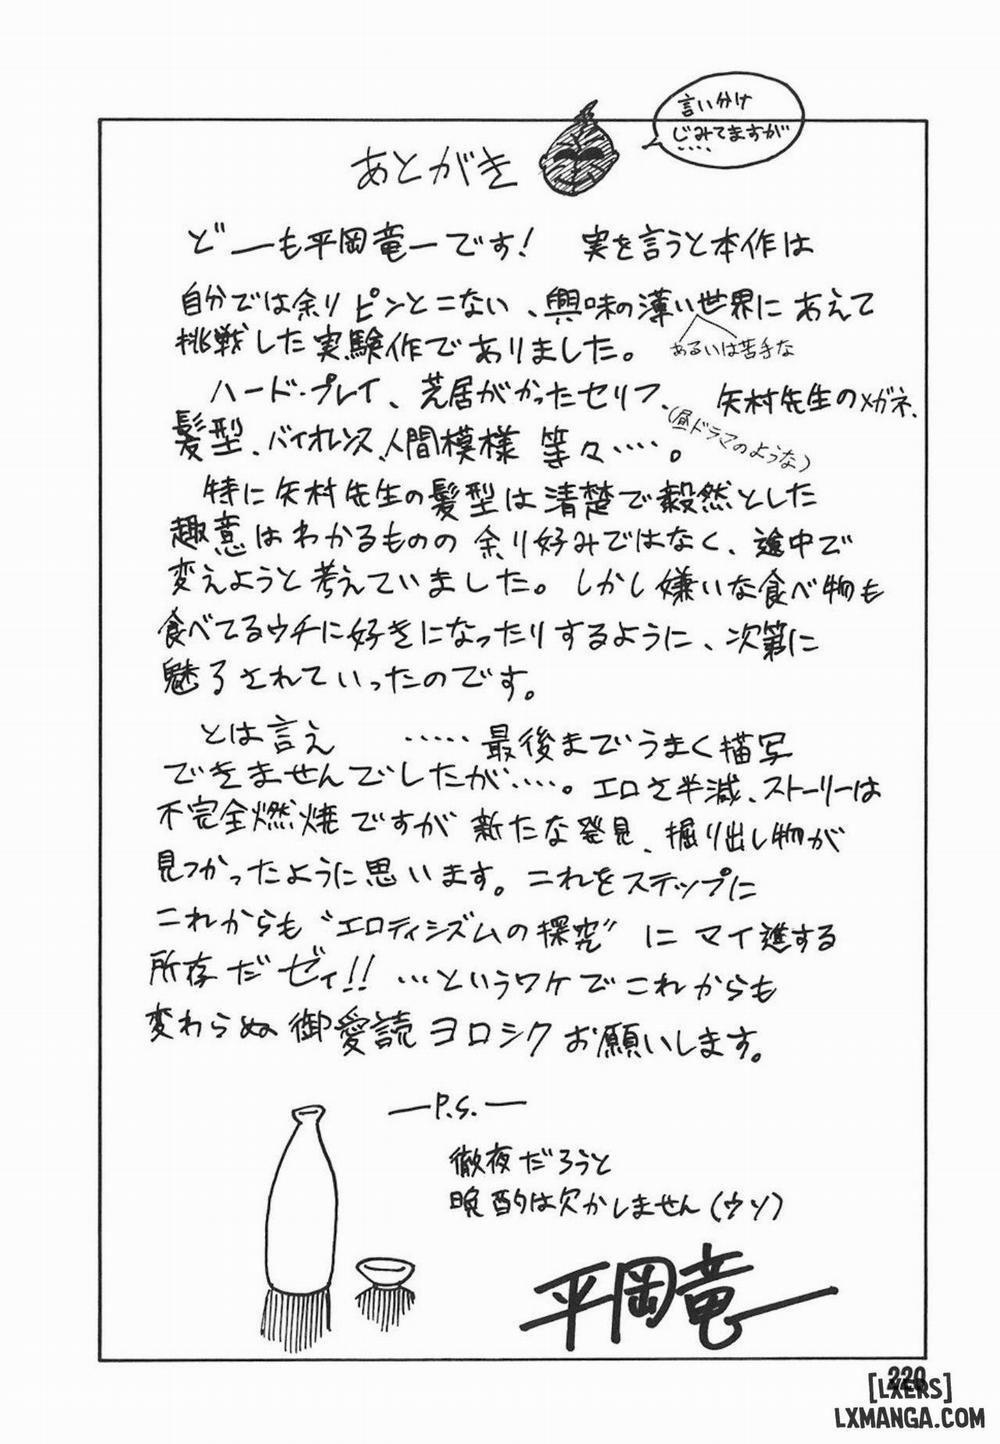 言い分け
じみてますが
‥‥
あとがき
どーも平岡竜一です! 実を言うと本作は
自分では余りピンとこない、興味の薄い世界に あえて
挑戦した実験作でありました。
あるいは苦手な
ハード・プレイ、芝居がかったセリフ、 矢村先生のメガネ、
髪型、バイオレンス、人間模様 等々‥‥。
(昼ドラマのような)
特に矢村先生の髪型は清楚で毅然とした
趣意はわかるものの 余り好みではなく、途中で
変えようと考えていました。しかし嫌いな食べ物も
食べてるウチに好きになったりするように、次第に
魅了されていったのです。
とは言え ‥‥‥最後までうまく描写
できませんでしたが‥‥。エロさ半減、ストーリーは
不完全燃焼ですが 新たな発見、掘り出し物が
見つかったように思います。これをステップに
これからも "エロティシズムの探究" に マイ進する
所存だゼィ!! …というワケでこれからも
変わらぬ御愛読ヨロシクお願いします。
—P.S.—
徹夜だろうと
晩酌は欠かしません(ウソ)
平岡竜一
220
[LXERS]
LXMANGA.COM